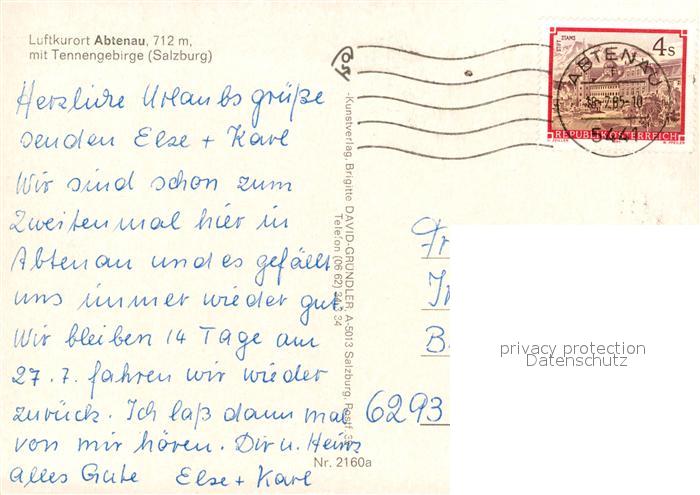 Luftkurort Abtenau, 712 m,
mit Tennengebirge (Salzburg)
Herzliche Urlaubsgrüße
senden Else + Karl
Wir sind schon zum
Zweitenmal hier in
Abtenau und es gefällt
uns immer wieder gut.
Wir bleiben 14 Tage am
27.7. fahren wir wieder
zurück. Ich laß dann mal
von mir hören. Dir u. Heinz
alles Gute Else + Karl
Kunstverlag, Brigitte DAVID-GRÜNDLER, A-5013 Salzburg, Postf.
Telefon (06 62) 34 3 34
Nr. 2160a
STIFT STAMS
4 S
REPUBLIK ÖSTERREICH
ABTENAU
18.-7.85-10
544
6293
privacy protection
Datenschutz